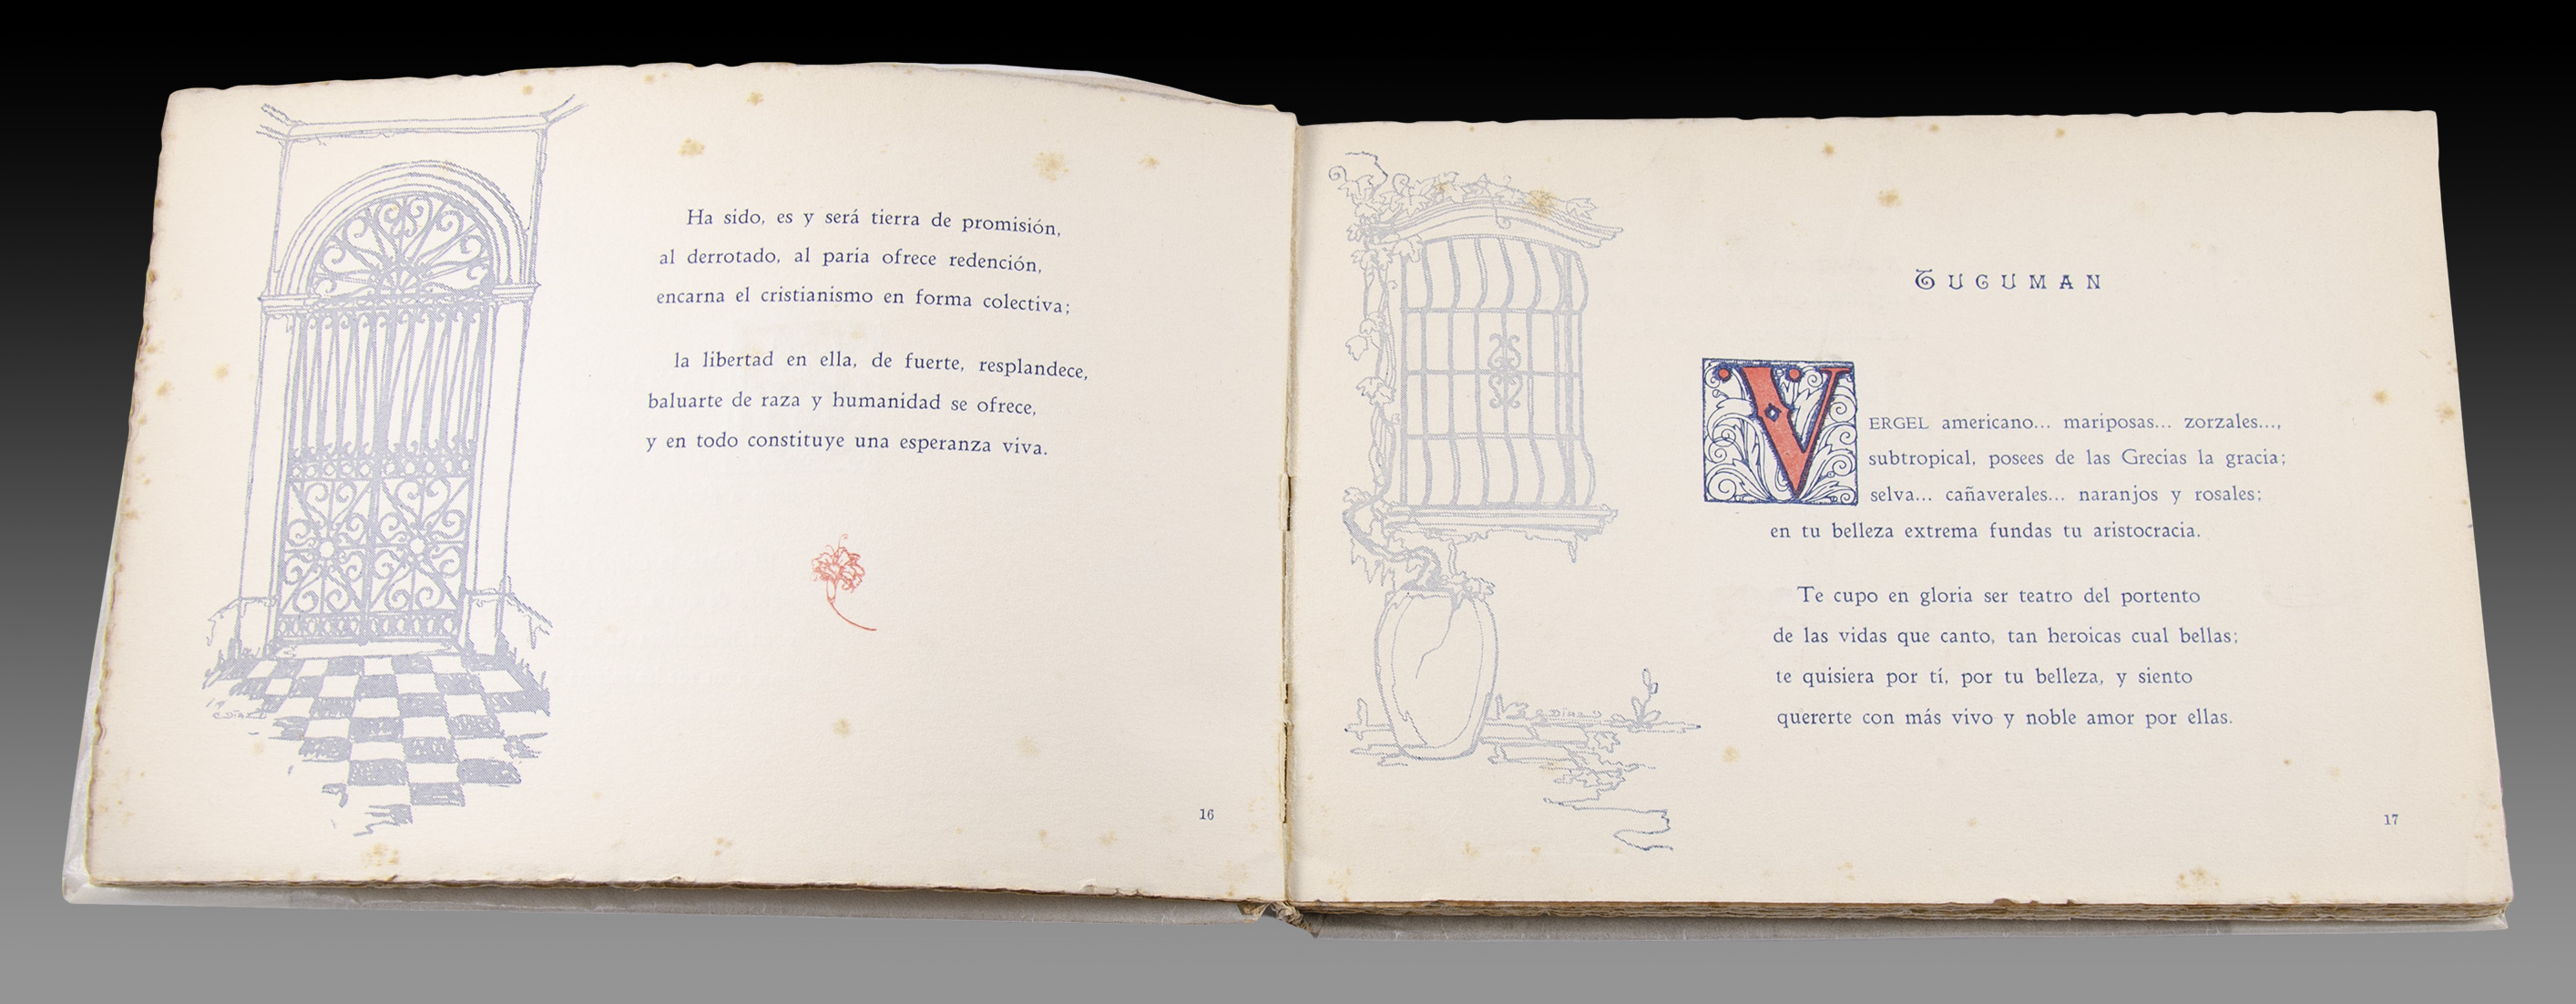 Ha sido, es y será tierra de promisión,
al derrotado, al paria ofrece redención,
encarna el cristianismo en forma colectiva;
la libertad en ella, de fuerte, resplandece,
baluarte de raza y humanidad se ofrece,
y en todo constituye una esperanza viva.
16
TUCUMAN
VERGEL americano... mariposas... zorzales...,
subtropical, posees de las Grecias la gracia;
selva... cañaverales... naranjos y rosales;
en tu belleza extrema fundas tu aristocracia.
Te cupo en gloria ser teatro del portento
de las vidas que canto, tan heroicas cual bellas;
te quisiera por tí, por tu belleza, y siento
quererte con más vivo y noble amor por ellas.
17